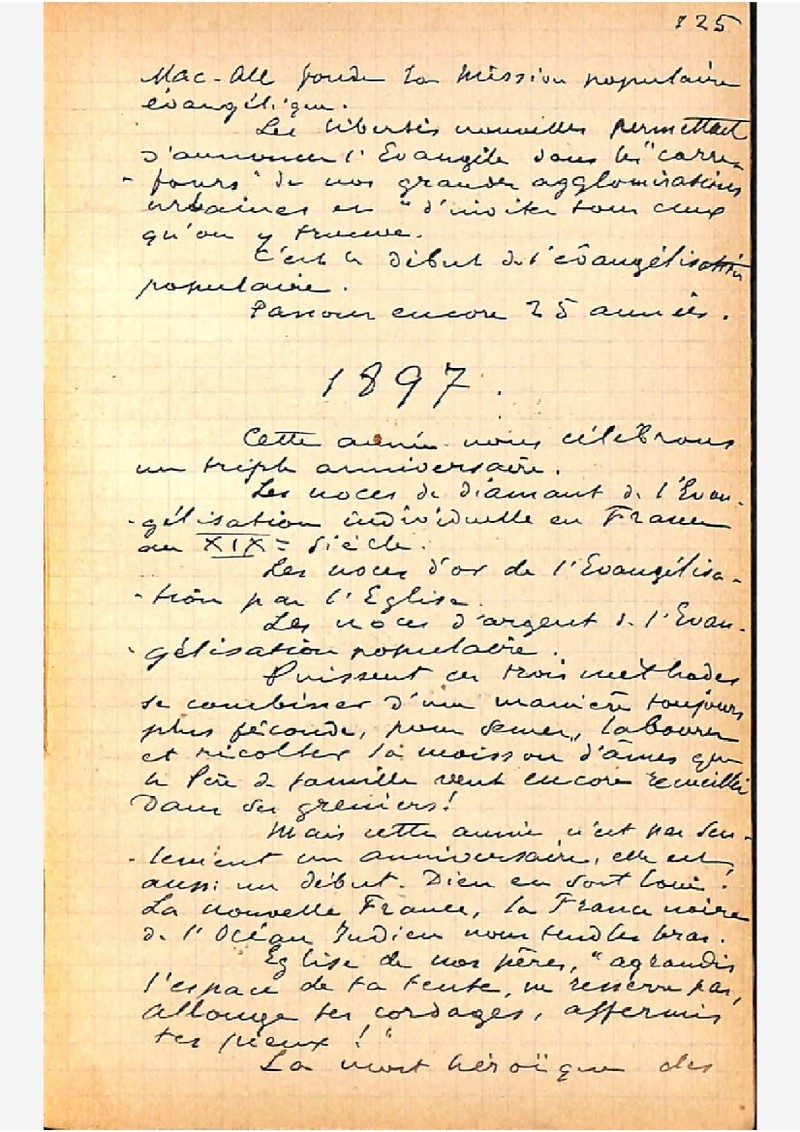 125
Mac-All fonde la Mission populaire
évangélique.
Les libertés nouvelles permettent
d'annoncer l'Evangile dans les "carre-
-fours" de nos grandes agglomérations
urbaines et "d'inviter tous ceux
qu'on y trouve.
C'est le début de l'évangélisation
populaire.
Passons encore 25 années.
1897.
Cette année nous célébrons
un triple anniversaire.
Les noces de diamant de l'Evan-
-gélisation individuelle en France
au XIXe siècle.
Les noces d'or de l'Evangélisa-
-tion par l'Eglise.
Les noces d'argent de l'Evan-
-gélisation populaire.
Puissent ces trois méthodes
se combiner d'une manière toujours
plus féconde, pour semer, labourer
et récolter la moisson d'âmes que
le Père de famille veut encore recueillir
dans ses greniers!
Mais cette année n'est pas seu-
-lement un anniversaire, elle est
aussi un début. Dieu en soit loué!
La nouvelle France, la France noire
de l'Océan Indien nous tend les bras.
Eglise de nos pères, "agrandis
l'espace de ta tente, ne resserre pas,
allonge tes cordages, affermis
tes pieux!"
La mort héroïque des